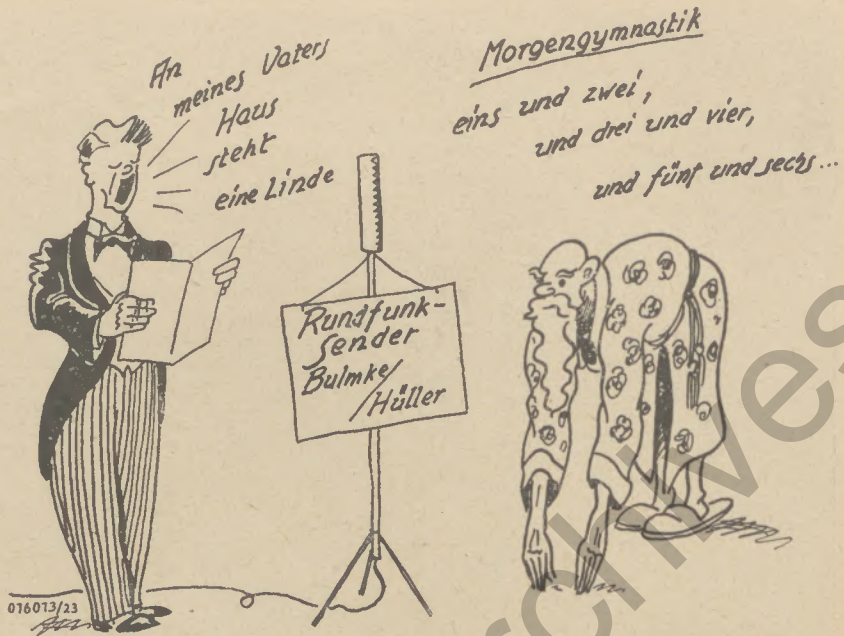 An
meines Vaters
Haus
steht
eine Linde
Rundfunk-
sender
Bulmke/
Hüller
Morgengymnastik
eins und zwei,
und drei und vier,
und fünf und sechs...
016073/23
chives